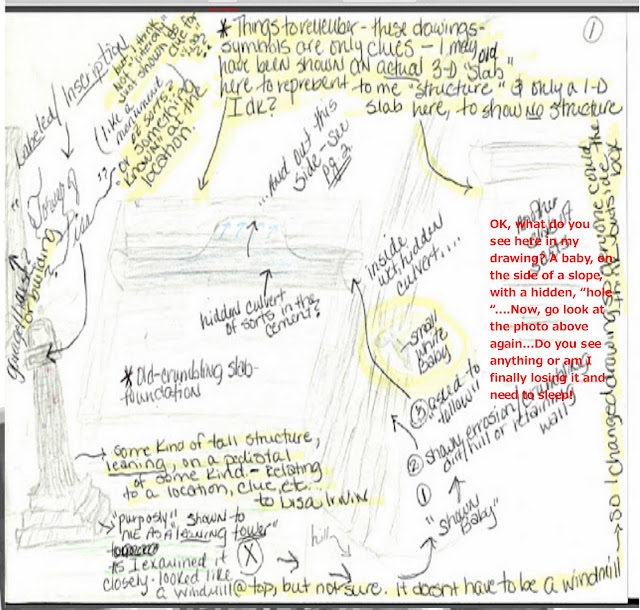 * Things to remember - these drawings -
symbols are only clues - I may
have been shown an actual 3-D old "slab"
here to reprebent to me "structure" & only a 1-D
Idk? slab here, to show no structure
①
Labeled/Inscription
but I think
not "literal"
just shown as
clue for
"Lisa"??
(like a
monument
of sorts?
or something
known at the
location.
"Tower of
Pisa"??
or building
...And out this
side - see
pg. 2
hidden culvert
of sorts in the
cement?
inside
wet/hidden
culvert....
* Old-crumbling slab-
foundation
Another
OK, what do you
see here in my
drawing? A baby, on
the side of a slope,
with a hidden, "hole
"....Now, go look at
the photo above
again...Do you see
anything or am I
finally losing it and
need to sleep!
small
white
baby
③ asked to
"follow"
② shown errosion/crumbling
dirt/hill or retaining
wall
①
"shown
Baby"
hill
some kind of tall structure,
leaning, on a pedistal
of some kind - Relating
to a location, clue, etc...
to Lisa Irwin
"purposly" shown to
me as a leaning tower"
As I examined it
closely - looked like
a windmill @ top, but not sure. It doesnt have to be a windmill
X
so I changed drawing so everyone could
think outside the
box